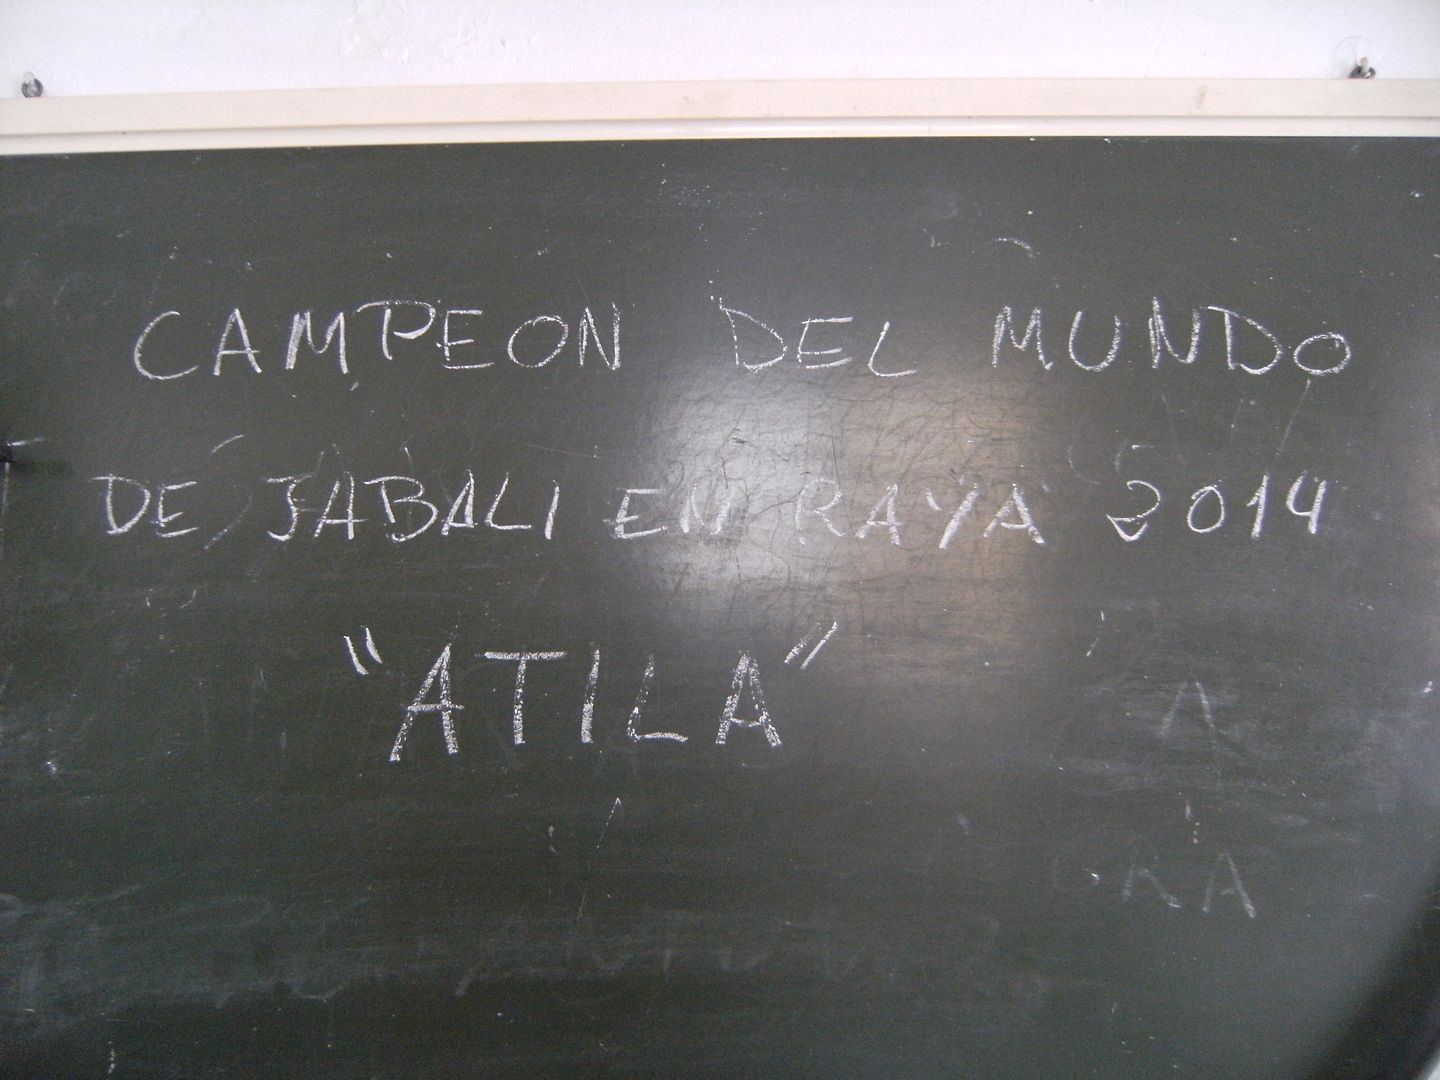 CAMPEON DEL MUNDO
DE JABALI EN RAYA 2014
"ATILA"